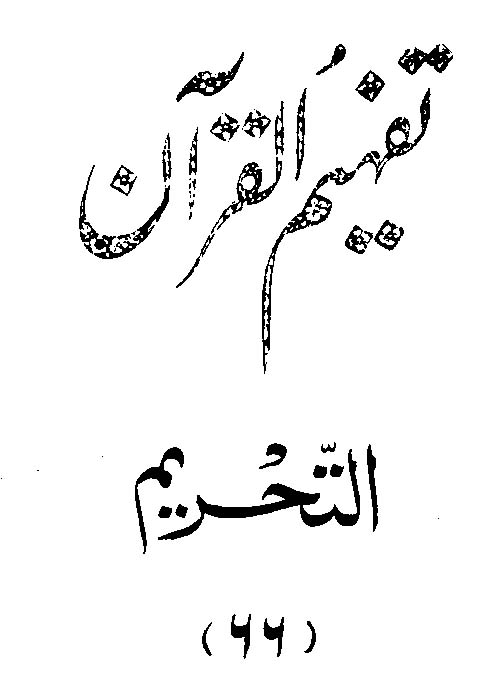 تفہیمُ القرآن
التَّحْریم
(۶۶)